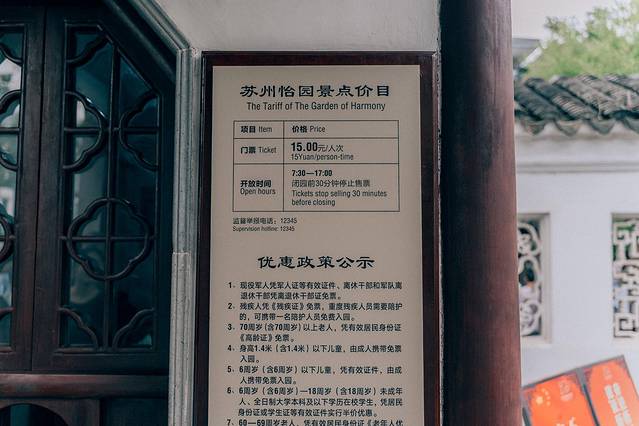 苏州怡园景点价目
The Tariff of The Garden of Harmony
项目 Item 价格 Price
门票 Ticket 15.00元/人次
15Yuan/person-time
开放时间 7:30—17:00
Open hours 闭园前30分钟停止售票
Tickets stop selling 30 minutes
before closing
监督举报电话：12345
Supervision hotline: 12345
优惠政策公示
1、现役军人凭军人证等有效证件、离休干部和军队离
退休干部凭离退休干部证免票。
2、残疾人凭《残疾证》免票，重度残疾人员需要陪护
的，可携带一名陪护人员免费入园。
3、70周岁（含70周岁）以上老人，凭有效居民身份证
《高龄证》免票。
4、身高1.4米（含1.4米）以下儿童，由成人携带免票
入园。
5、6周岁（含6周岁）以下儿童，凭有效证件，由成
人携带免票入园。
6、6周岁（含6周岁）—18周岁（含18周岁）未成年
人、全日制大学本科及以下学历在校学生，凭居民
身份证或学生证等有效证件实行半价优惠。
7、60—69周岁老人，凭有效居民身份证《老年人优